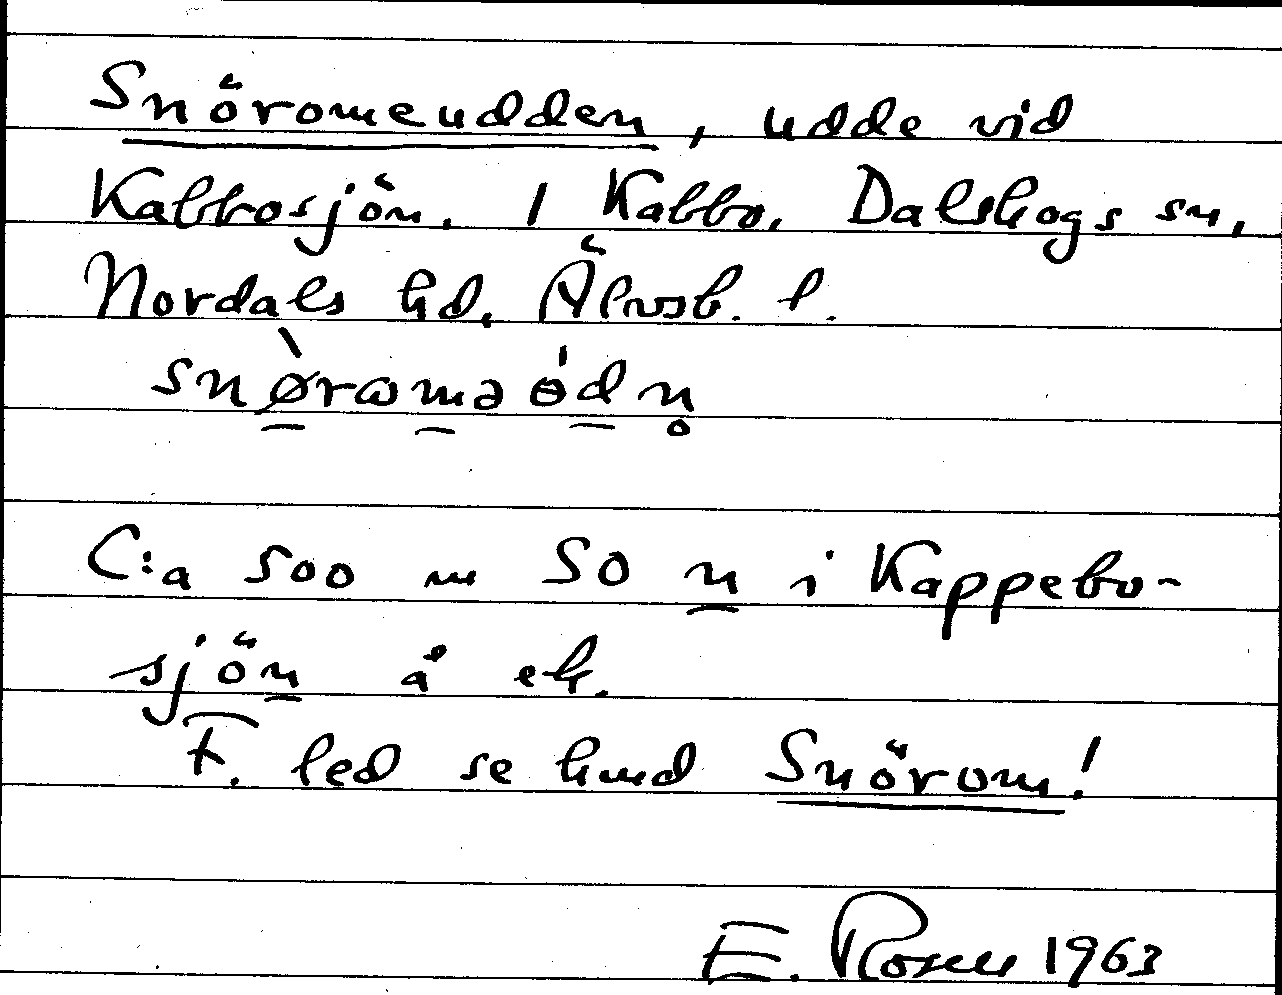 Snöromeudden, udde vid
Kabbosjön. 1 Kabbo, Dalskogs sn,
Nordals hd. Älvsb. l.
snø̀rɷmɘ ɵ́dn̥
C:a 500 m SO n i Kappebo-
sjön å ek.
F. led se hmd Snörom!
E. Rosell 1963